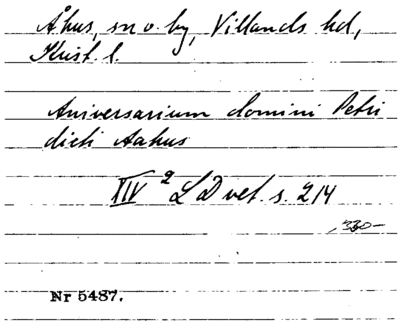 Åhus, sn o. by, Villands hd,
Krist. l.
Aniversarium domini Petri
dicti Aahus
XIV 2 LD vet. s. 214
,330-
Nr 5487.